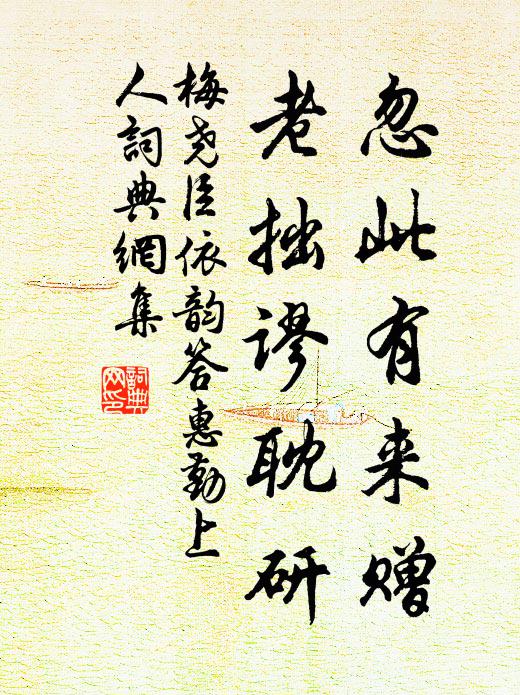 忽此有来赠
老拙谬耽研
梅尧臣依韵答惠勤上
人詞典網集
詞典网印